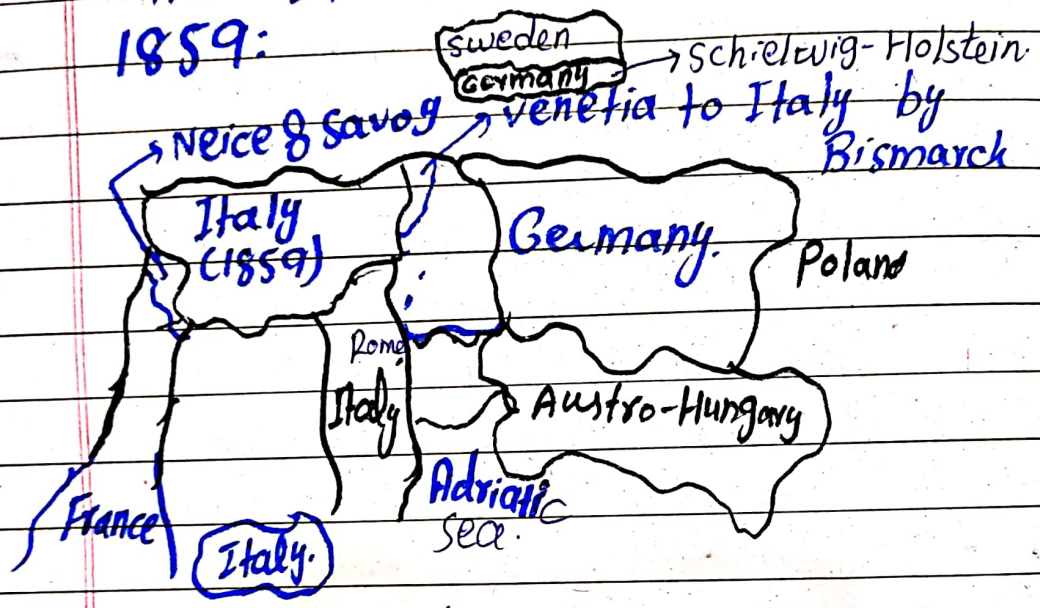 1859:
Sweden
Germany
→ Schielwig-Holstein.
→ Neice & Savoy
→ Venetia to Italy by
Bismarck
Italy
(1859)
Germany.
Poland
Rome
Italy
Austro-Hungary
Adriatic
Sea.
France
Italy.